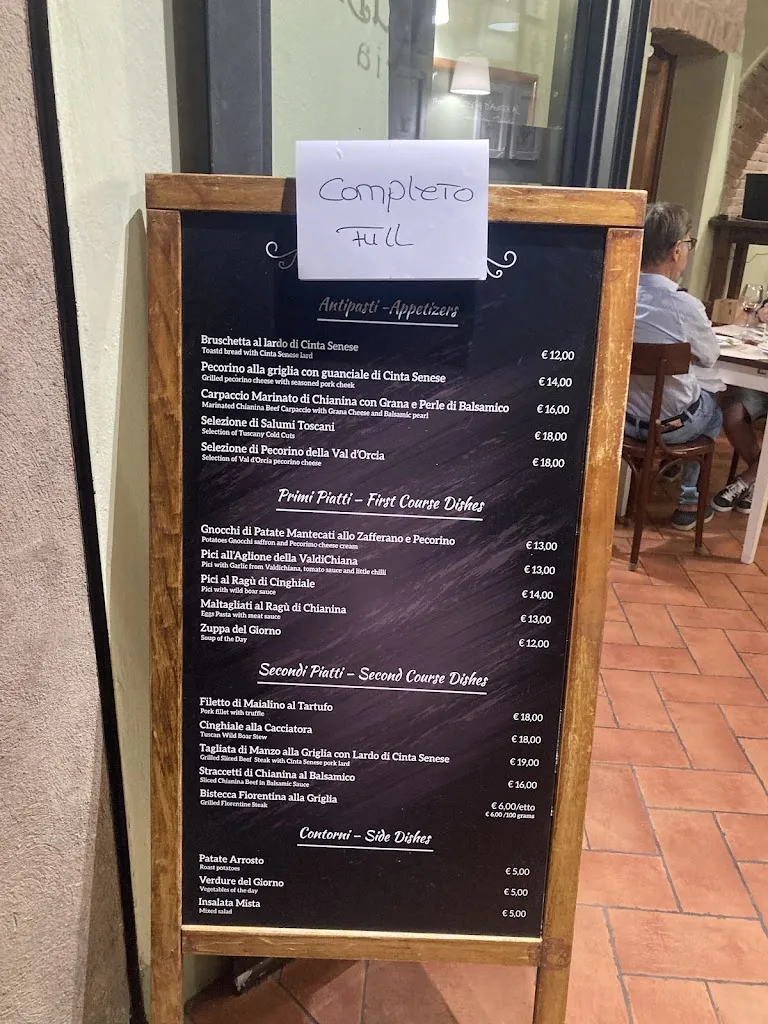 Completo
FULL
Antipasti – Appetizers
Bruschetta al lardo di Cinta Senese
Toastd bread with Cinta Senese lard
€ 12,00
Pecorino alla griglia con guanciale di Cinta Senese
Grilled pecorino cheese with seasoned pork cheek
€ 14,00
Carpaccio Marinato di Chianina con Grana e Perle di Balsamico
Marinated Chianina Beef Carpaccio with Grana Cheese and Balsamic pearl
€ 16,00
Selezione di Salumi Toscani
Selection of Tuscany Cold Cuts
€ 18,00
Selezione di Pecorino della Val d'Orcia
Selection of Val d'Orcia pecorino cheese
€ 18,00
Primi Piatti – First Course Dishes
Gnocchi di Patate Mantecati allo Zafferano e Pecorino
Potatoes Gnocchi saffron and Pecorimo cheese cream
€ 13,00
Pici all'Aglione della ValdiChiana
Pici with Garlic from Valdichiana, tomato sauce and little chilli
€ 13,00
Pici al Ragù di Cinghiale
Pici with wild boar sauce
€ 14,00
Maltagliati al Ragù di Chianina
Eggs Pasta with meat sauce
€ 13,00
Zuppa del Giorno
Soup of the Day
€ 12,00
Secondi Piatti – Second Course Dishes
Filetto di Maialino al Tartufo
Pork fillet with truffle
€ 18,00
Cinghiale alla Cacciatora
Tuscan Wild Boar Stew
€ 18,00
Tagliata di Manzo alla Griglia con Lardo di Cinta Senese
Grilled Sliced Beef Steak with Cinta Senese pork lard
€ 19,00
Straccetti di Chianina al Balsamico
Sliced Chianina Beef in Balsamic Sauce
€ 16,00
Bistecca Fiorentina alla Griglia
Grilled Florentine Steak
€ 6,00/etto
€ 6,00 /100 grams
Contorni – Side Dishes
Patate Arrosto
Roast potatoes
€ 5,00
Verdure del Giorno
Vegetables of the day
€ 5,00
Insalata Mista
Mixed salad
€ 5,00